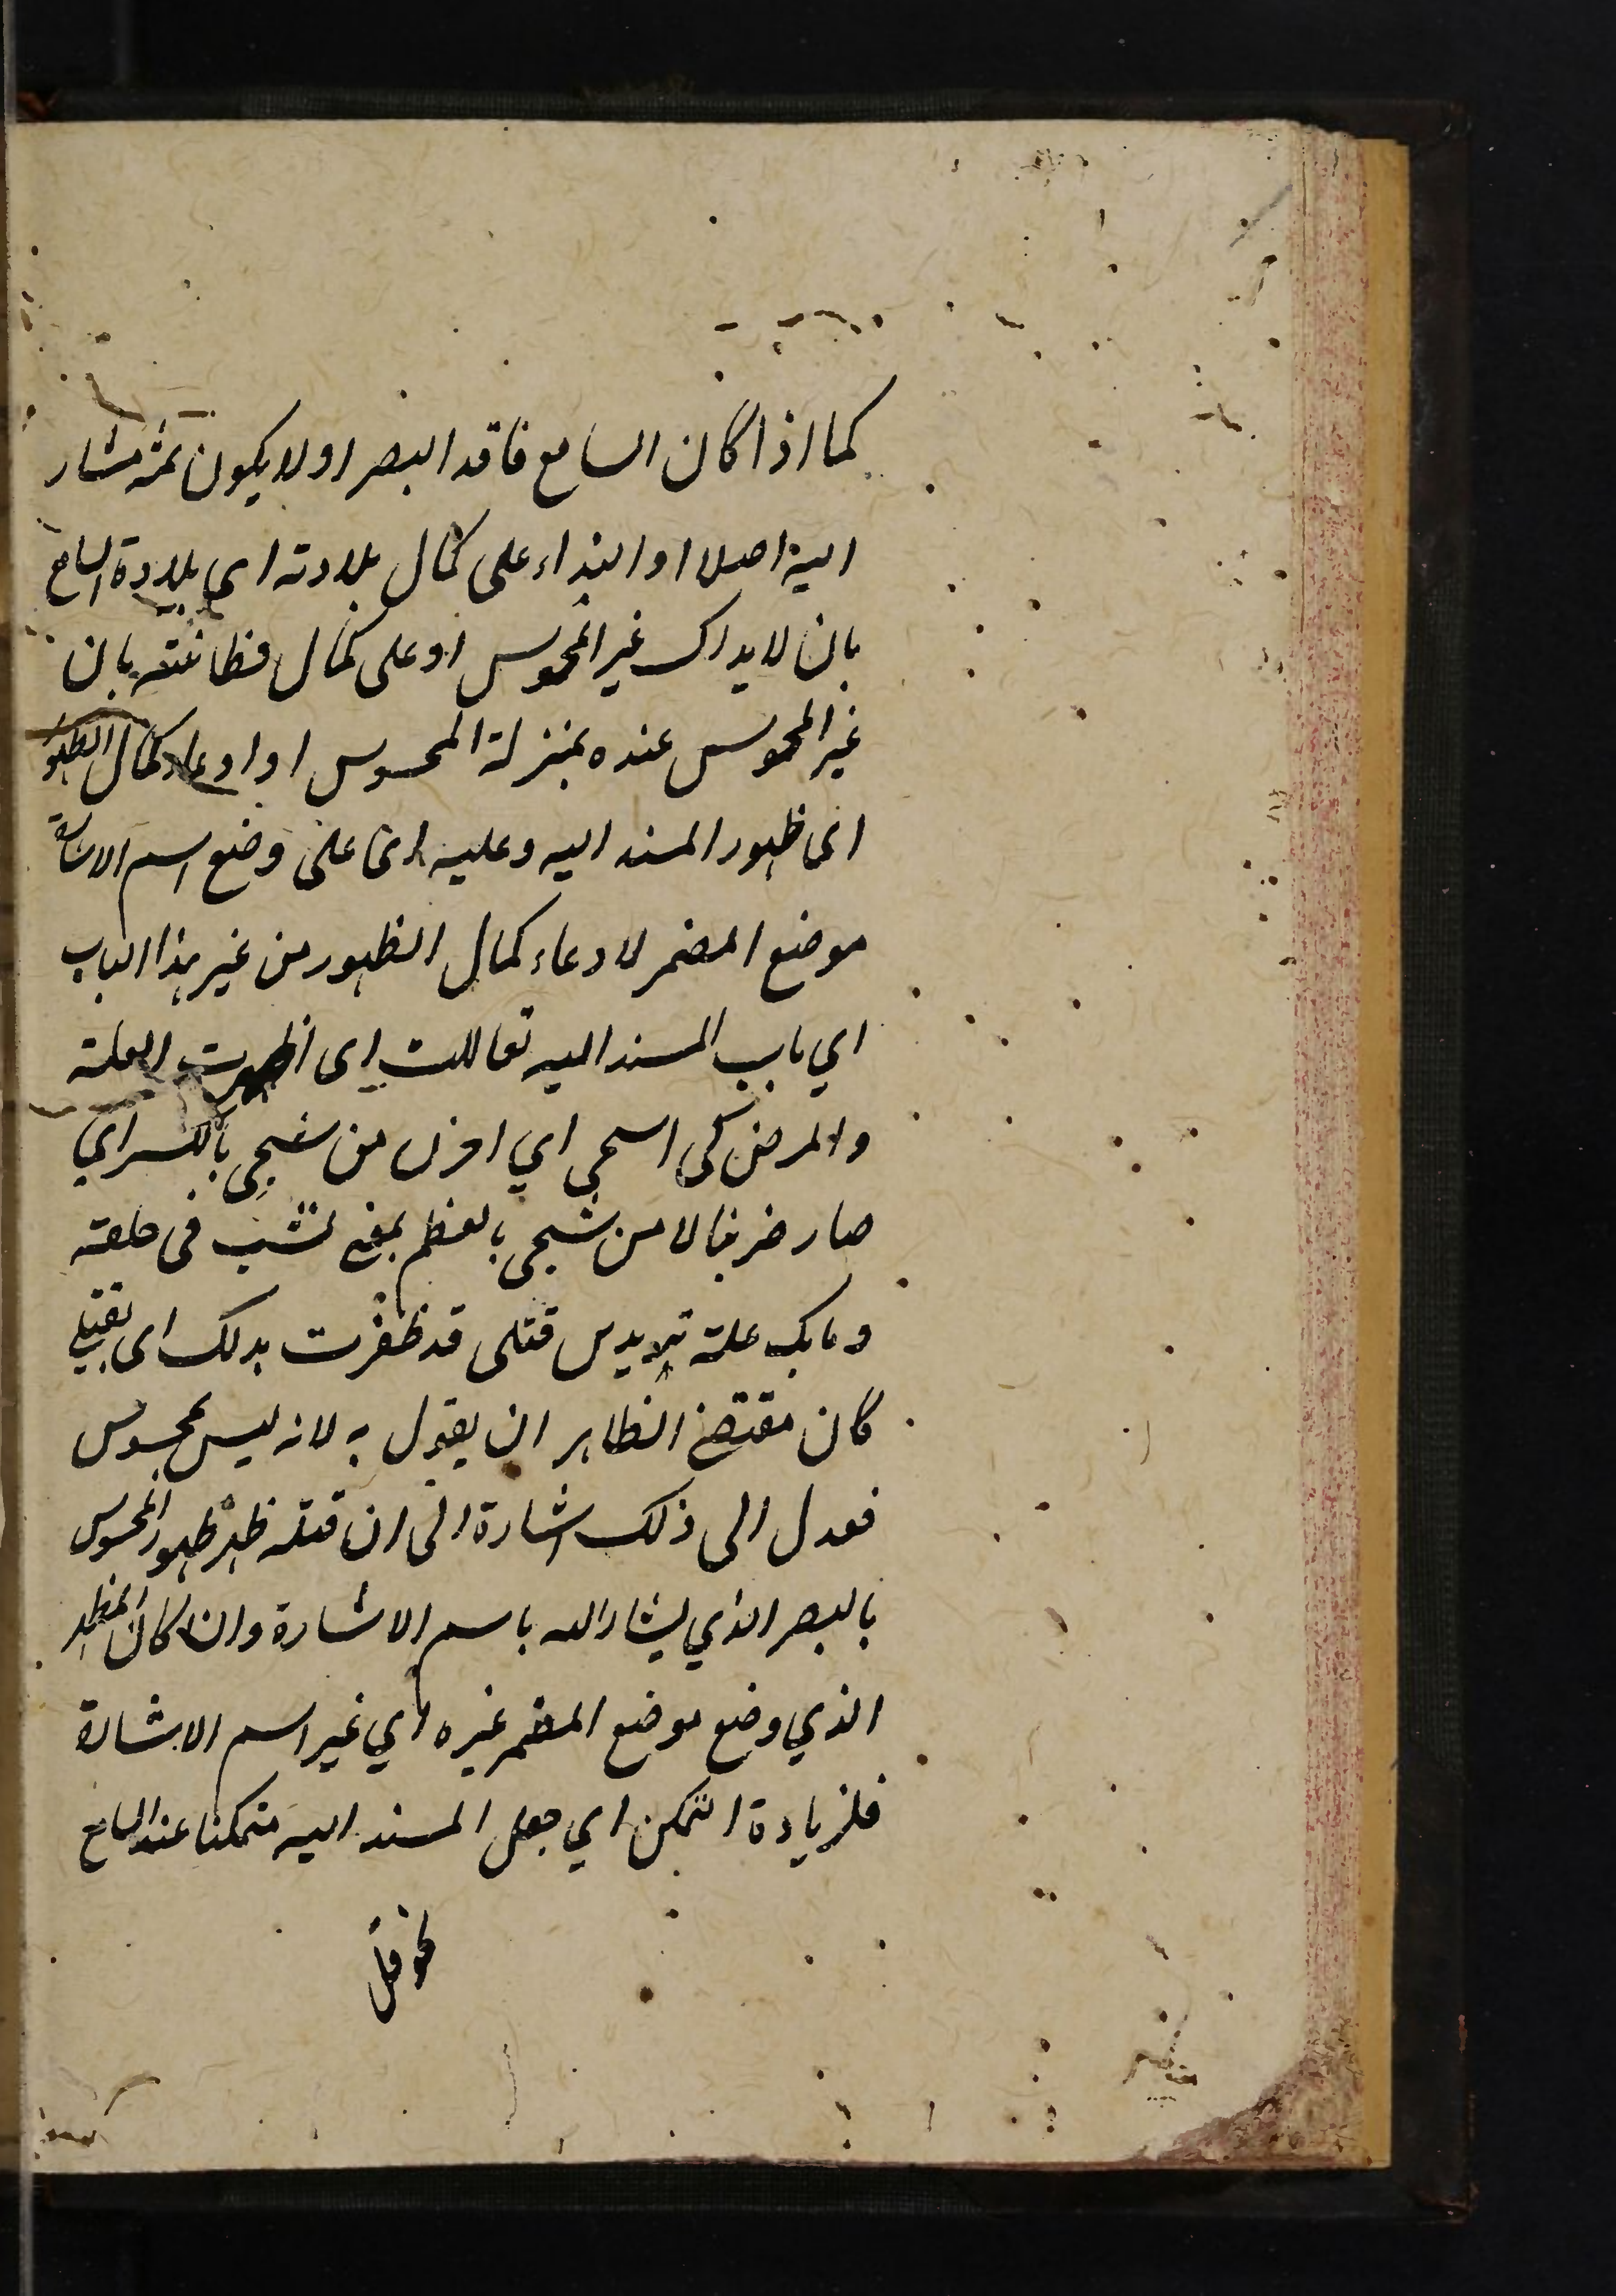 كما اذا كان السامع فاقد البصر او لا يكون ثمه مشار
اليه اصلا او النداء على كمال بلادته اى بلادة السامع
بان لا يدرك غير المحسوس او على كمال فطانته بان
غير المحسوس عنده بمنزلة المحسوس او ادعاء كمال الظهور
اى ظهور المسند اليه وعليه اى على وضع اسم الاشارة
موضع المضمر لادعاء كمال الظهور من غير هذا الباب
اي باب المسند اليه تعاللت اى اظهرت العلة
والمرض كى اشجى اي احزن من شجى بالكسر اي
صار حزينا لا من شجى بالعظم بمعنى نشب فى حلقه
وما بك علة تريدين قتلى قد ظفرت بذلك اى بقتلي
كان مقتضى الظاهر ان يقول به لانه ليس بمحسوس
فعدل الى ذلك اشارة الى ان قتله ظهر ظهور المحسوس
بالبصر الذي يشار اليه باسم الاشارة وان كان المظهر
الذي وضع موضع المضمر غيره اي غير اسم الاشارة
فلزيادة التمكن اي جعل المسند اليه متمكنا عند السامع
نحو قل